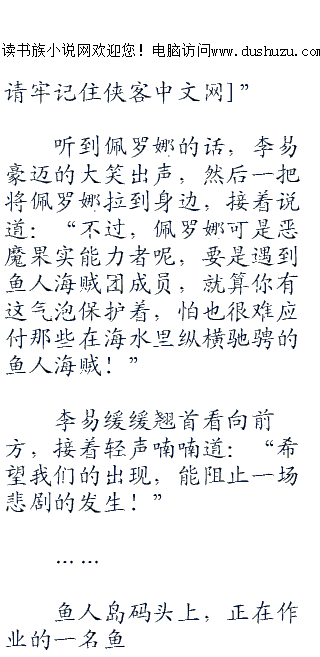 读书族小说网欢迎您！电脑访问www.dushuzu.com
请牢记住侠客中文网]”
听到佩罗娜的话，李易
豪迈的大笑出声，然后一把
将佩罗娜拉到身边，接着说
道：“不过，佩罗娜可是恶
魔果实能力者呢，要是遇到
鱼人海贼团成员，就算你有
这气泡保护着，怕也很难应
付那些在海水里纵横驰骋的
鱼人海贼！”
李易缓缓翘首看向前
方，接着轻声喃喃道：“希
望我们的出现，能阻止一场
悲剧的发生！”
……
鱼人岛码头上，正在作
业的一名鱼